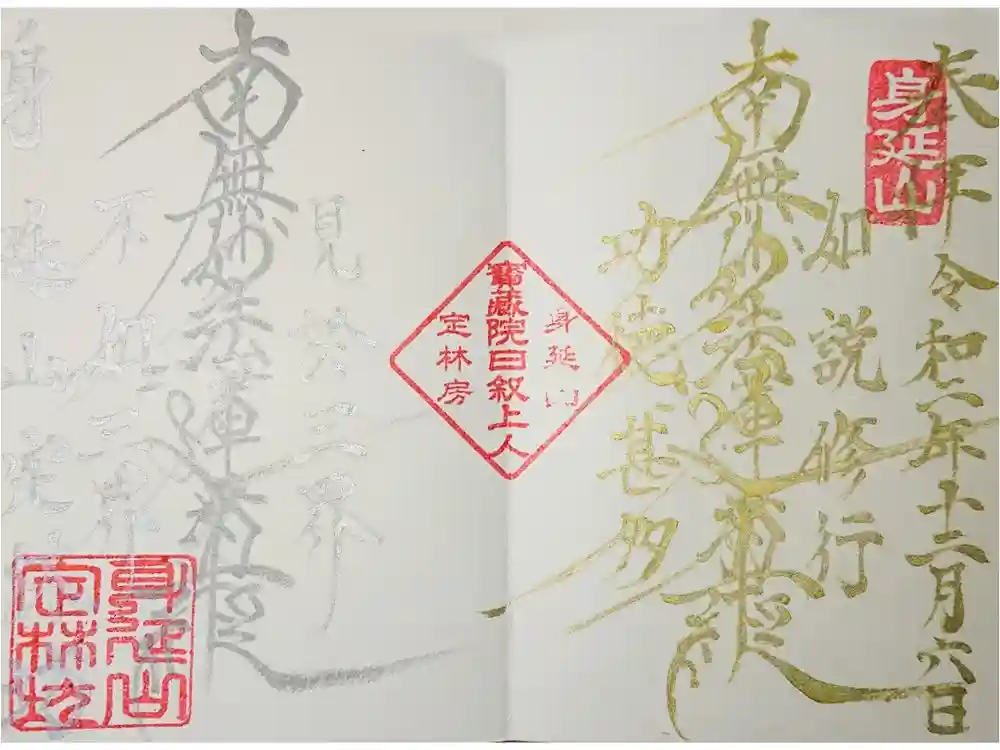 奉拝 令和二年十二月六日
身延山
如説修行
南無妙法蓮華經
功徳甚多
身延山
寶藏院日叙上人
定林房
見於三界
南無妙法蓮華經
不如三界
身延山定
身延山
定林坊